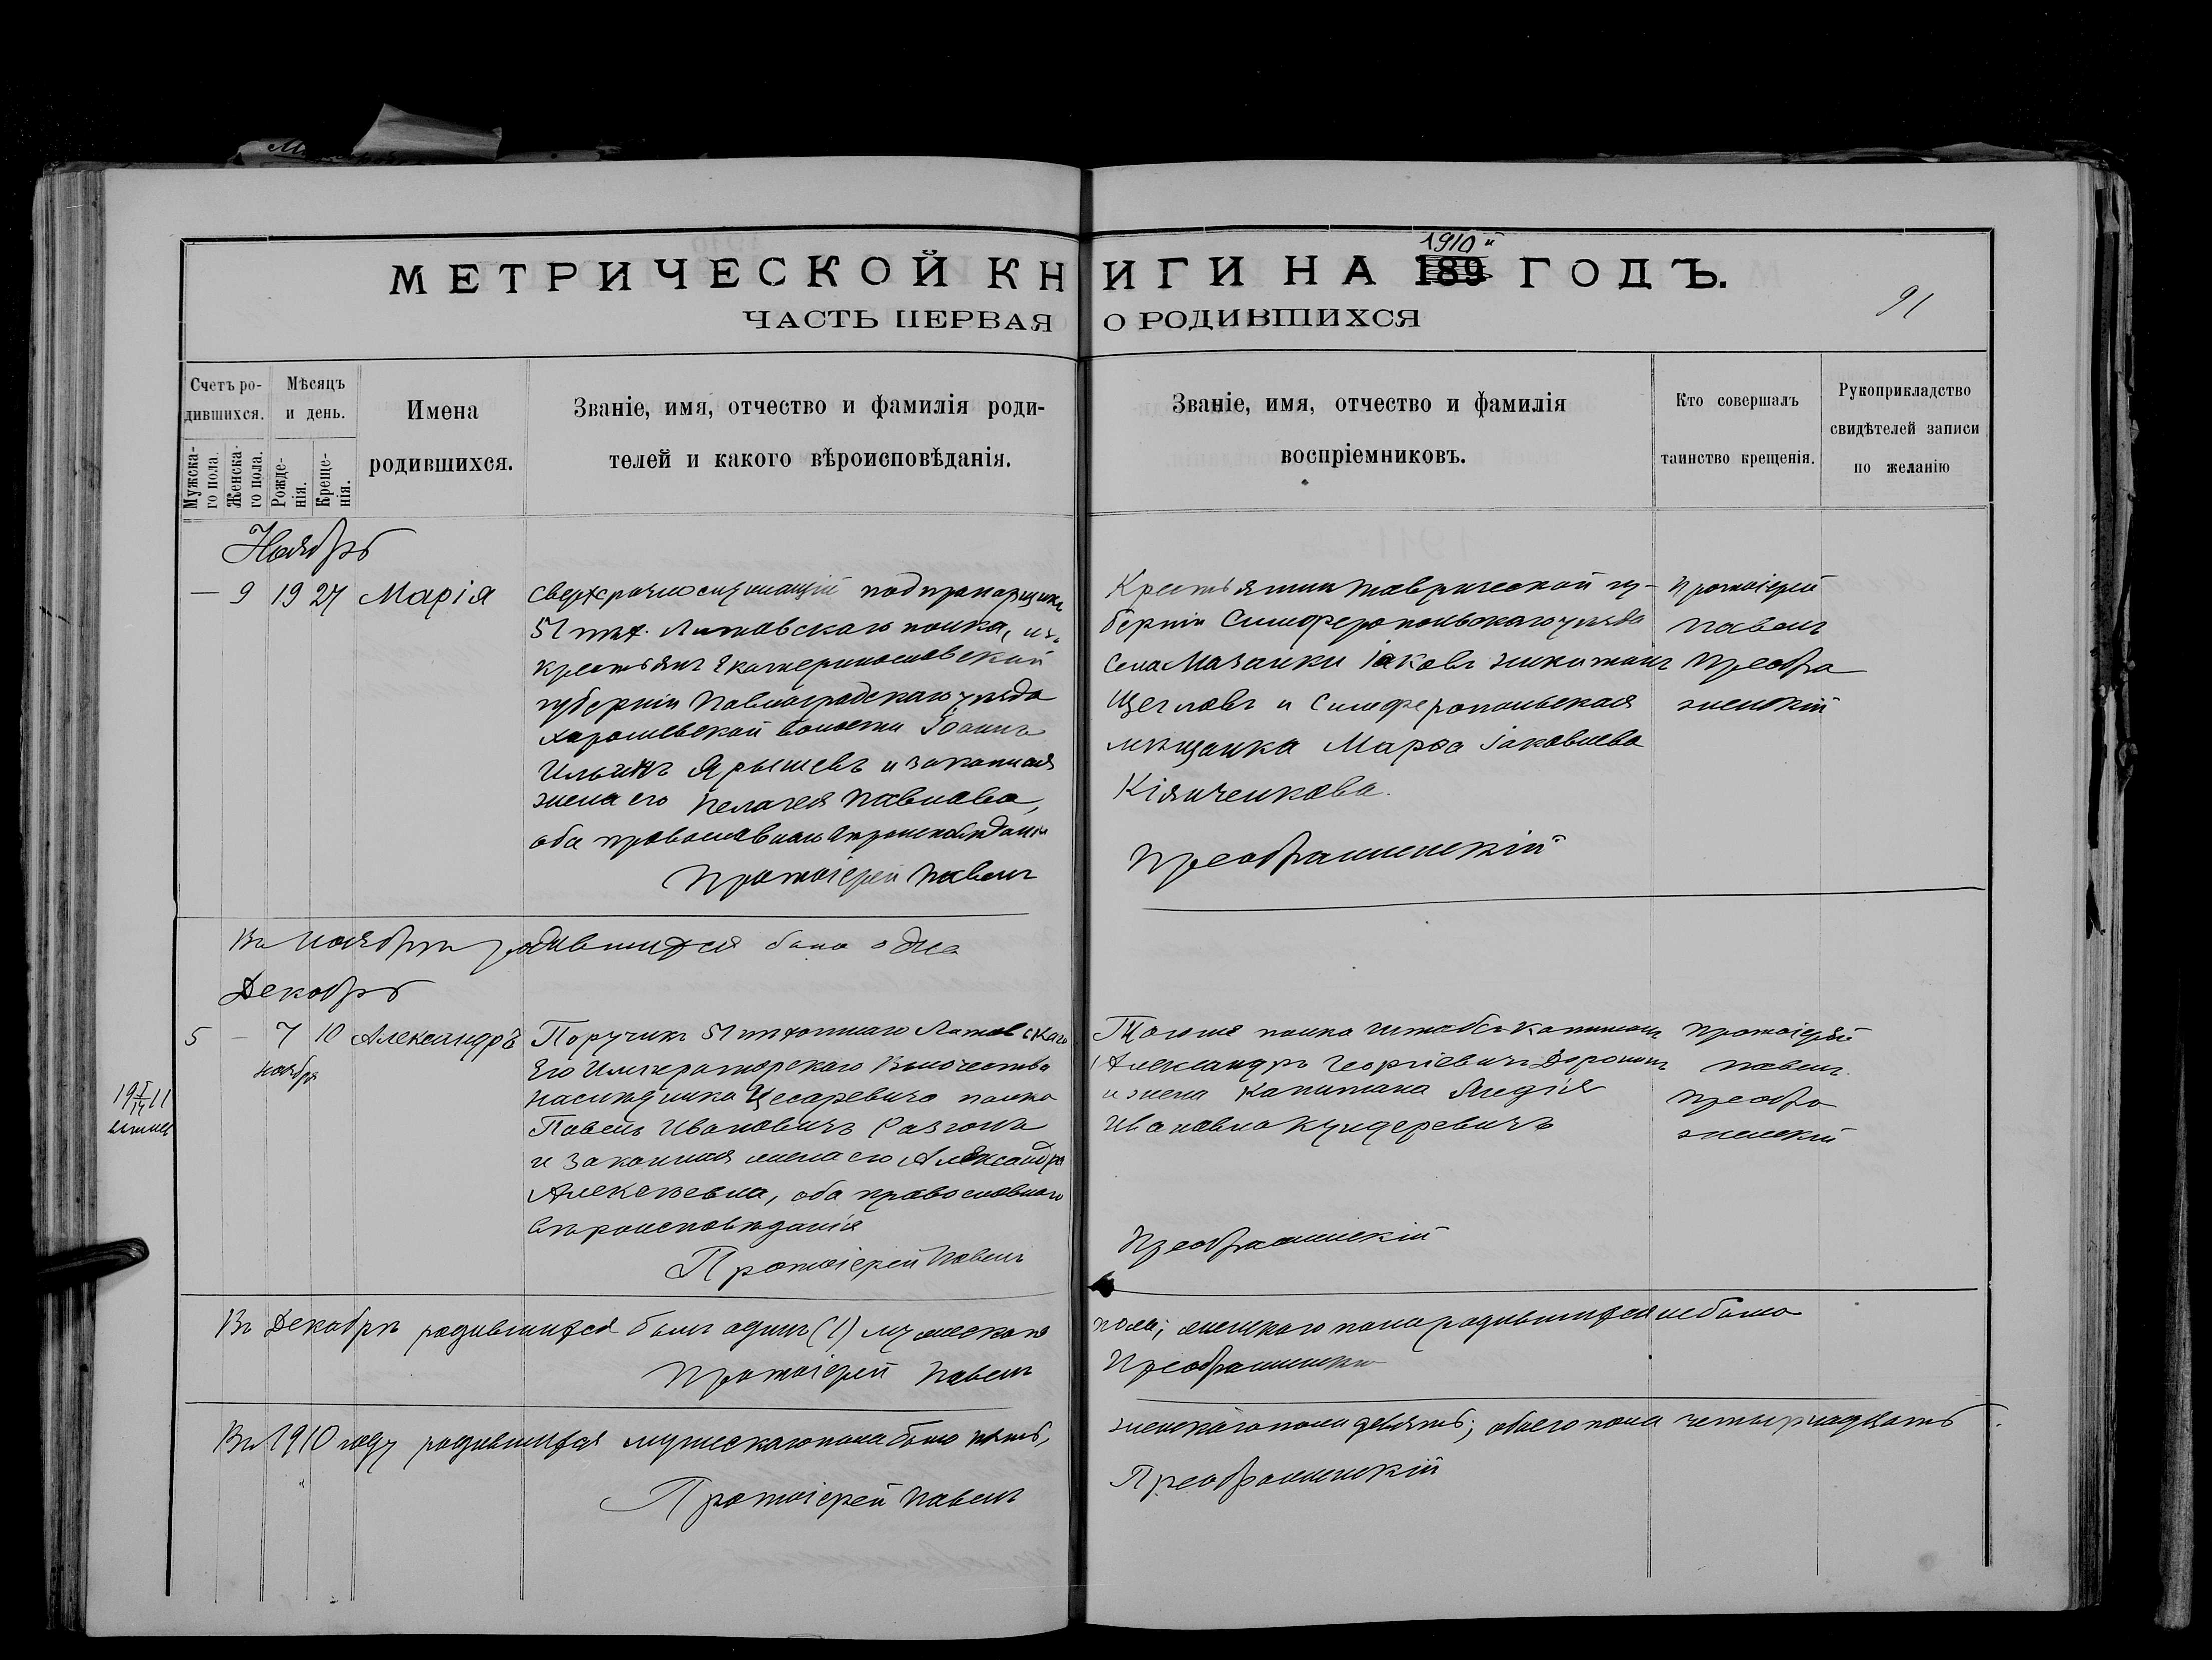 1910й
МЕТРИЧЕСКОЙ КНИГИ НА 189 ГОДЪ.
ЧАСТЬ ПЕРВАЯ О РОДИВШИХСЯ
91
Счетъ родившихся.
Мужскаго пола.
Женскаго пола.
Мѣсяцъ и день.
Рожденія.
Крещенія.
Имена
родившихся.
Званіе, имя, отчество и фамилія роди-
телей и какого вѣроисповѣданія.
Званіе, имя, отчество и фамилія
воспріемниковъ.
Кто совершалъ
таинство крещенія.
Рукоприкладство
свидѣтелей записи
по желанію
Ноябрь
— 9 19 27 Марія
Сверхсрочнослужащій подпрапорщикъ
51 пѣх. Литовскаго полка, изъ
крестьянъ Екатеринославской
губерніи Павлоградскаго уѣзда
Хорошевской волости Іоаннъ
Ильинъ Ярышевъ и законная
жена его Пелагея Павлова,
оба православнаго вѣроисповѣданія
Протоіерей Павелъ
Крестьянинъ Таврической гу-
берніи Симферопольскаго уѣзда
села Мазанки Іаковъ Никитинъ
Щегловъ и Симферопольская
мѣщанка Марфа Іаковлева
Кіянченкова.
Преображенскій
Протоіерей
Павелъ
Преобра
женскій
Въ Ноябрѣ родившихся была одна
Декабрь
5 — 7 10 Александръ
ноября
Поручикъ 51 пѣхотнаго Литовскаго
Его Императорскаго Высочества
Наслѣдника Цесаревича полка
Павелъ Ивановичъ Разгонъ
и законная жена его Александра
Алексѣевна, оба православнаго
вѣроисповѣданія
Протоіерей Павелъ
Того же полка Штабсъ-Капитанъ
Александръ Георгіевичъ Доронинъ
и жена Капитана Лидія
Ивановна Кундеревичъ
Преображенскій
Протоіерей
Павелъ
Преобра
женскій
19 I/14 11
Въ Декабрѣ родившихся былъ одинъ (1) мужескаго
пола; женскаго пола родившихся не было
Протоіерей Павелъ
Преображенскій
Въ 1910 году родившихся мужескаго пола было пять,
женскаго пола девять; обоего пола четырнадцать.
Протоіерей Павелъ
Преображенскій